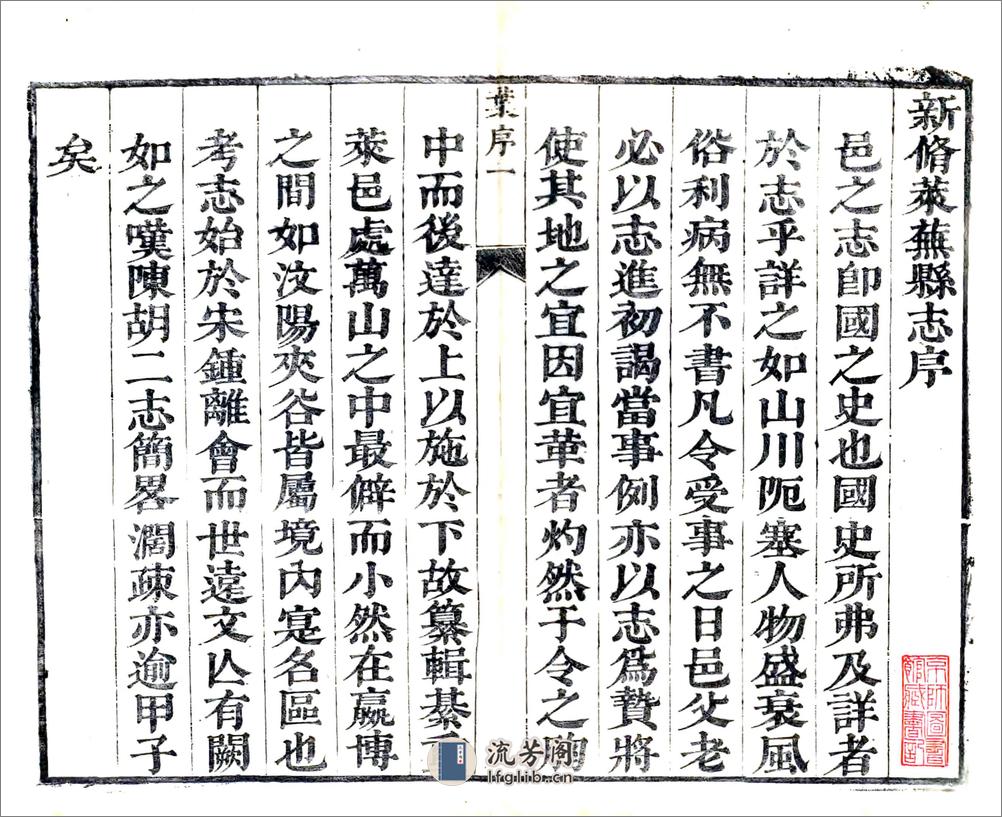 新脩萊蕪縣志序
邑之志卽國之史也國史所弗及詳者
於志乎詳之如山川阨塞人物盛衰風
俗利病無不書凡令受事之日邑父老
必以志進初謁當事例亦以志爲贄將
使其地之宜因宜革者灼然于令之胸
葉序一
中而後達於上以施於下故纂輯綦重
萊邑處萬山之中最僻而小然在嬴博
之間如汶陽夾谷皆屬境內寔名區也
考志始於宋鍾離會而世遠文亾有闕
如之嘆陳胡二志簡畧濶疎亦逾甲子
矣
流芳阁
lfglib.cn